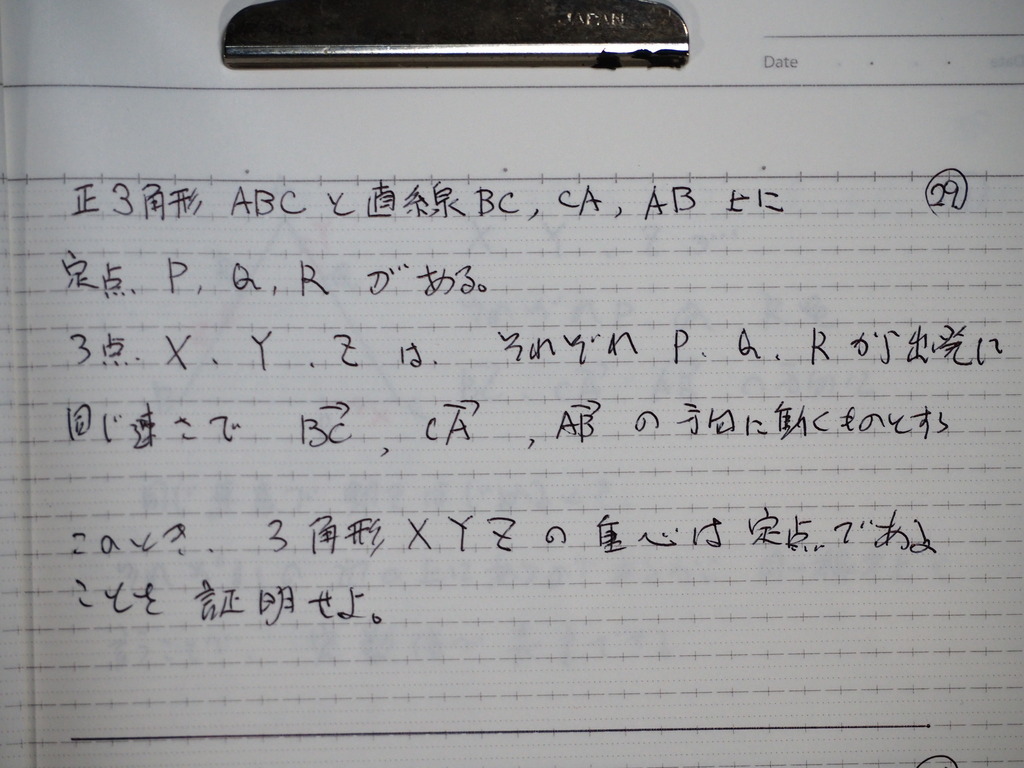 JAPAN
Date
正3角形 ABC と 直線 BC, CA, AB 上に
㉙
定点 P, Q, R がある。
3点 X、Y、Z は、それぞれ P、Q、R から出発し
同じ速さで BC, CA, AB の方向に動くものとする
このとき、3角形 XYZ の重心は定点である
ことを証明せよ。